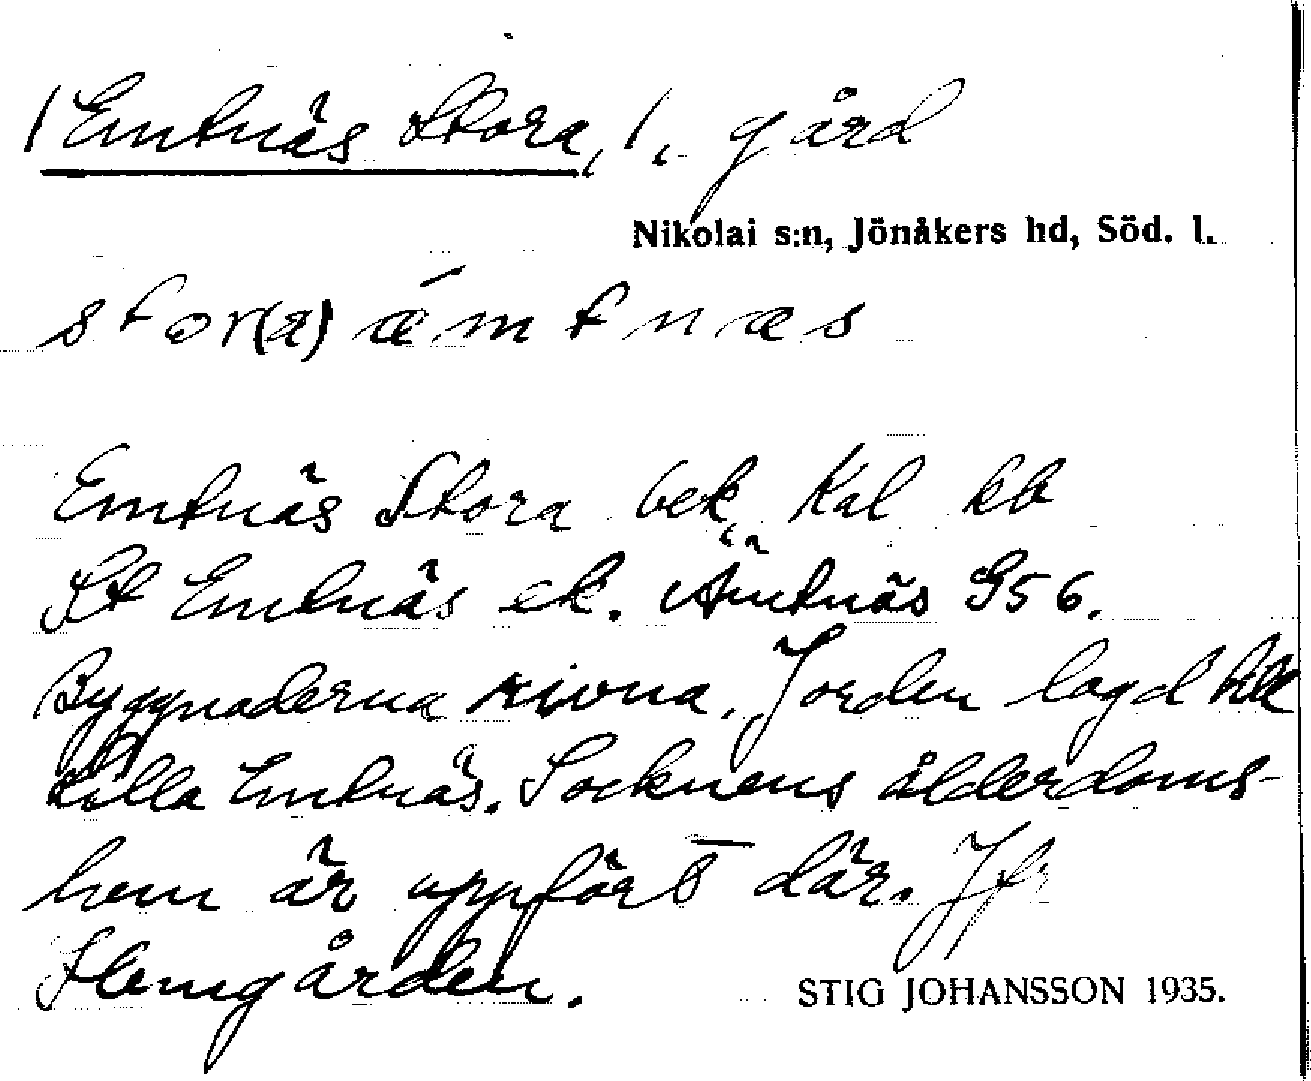 /Emtnäs Stora,/, gård
Nikolai s:n, Jönåkers hd, Söd. l.
stor(a) ǽmtnæs
Emtnäs Stora bek, Kal kb
St Emtnäs ek. Ämtnäs G56.
Byggnaderna rivna. Jorden lagd till
Lilla Emtnäs. Socknens ålderdoms-
hem är uppfört där. Jfr
Hemgården.
STIG JOHANSSON 1935.